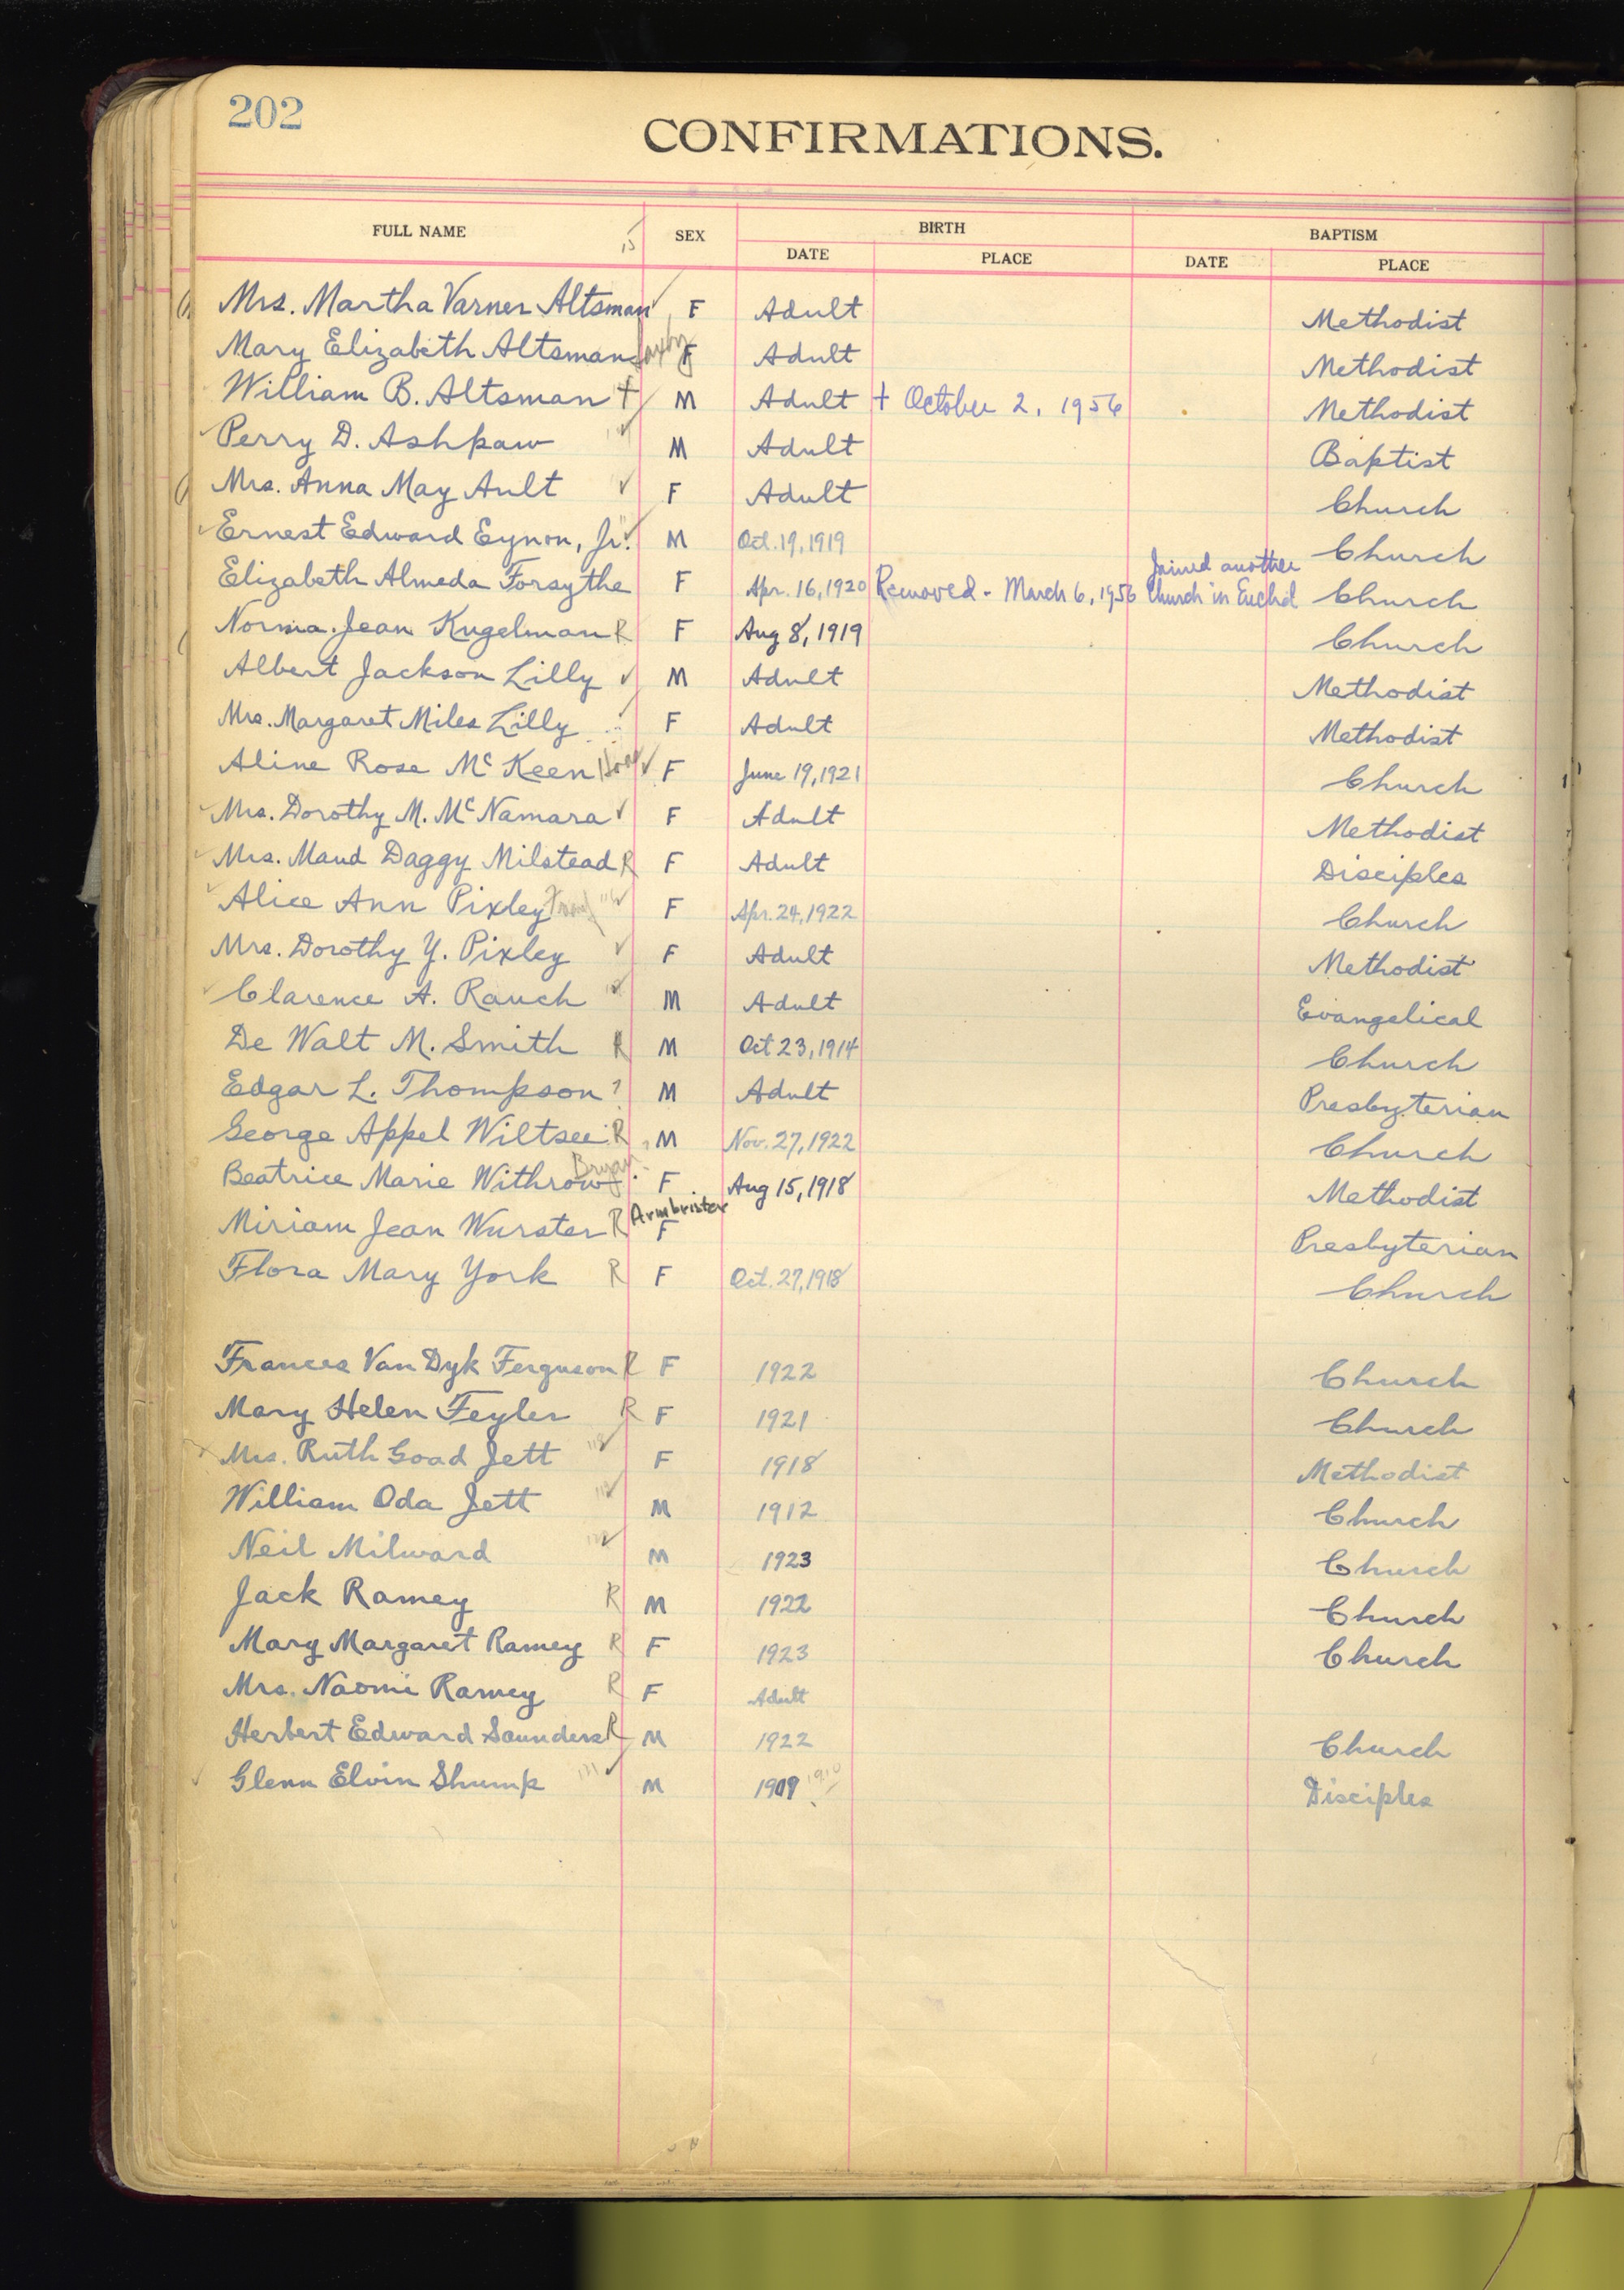 202
CONFIRMATIONS.
FULL NAME SEX BIRTH BAPTISM
DATE PLACE DATE PLACE
15
Mrs. Martha Varner Altsman ✓ F Adult Methodist
Mary Elizabeth Altsman F Adult Methodist
William B. Altsman † M Adult † October 2, 1956 Methodist
Perry D. Ashpaw M Adult Baptist
Mrs. Anna May Ault ✓ F Adult Church
Ernest Edward Eynon, Jr. ✓ M Oct. 19, 1919 Church
Elizabeth Almeda Forsythe F Apr. 16, 1920 Removed - March 6, 1956 Joined another Church in Euclid Church
Norma Jean Kugelman R F Aug 8, 1919 Church
Albert Jackson Lilly ✓ M Adult Methodist
Mrs. Margaret Miles Lilly F Adult Methodist
Aline Rose Mc Keen ✓ F June 19, 1921 Church
Mrs. Dorothy M. Mc Namara ✓ F Adult Methodist
Mrs. Maud Daggy Milstead R F Adult Disciples
Alice Ann Pixley F Apr. 24, 1922 Church
Mrs. Dorothy Y. Pixley ✓ F Adult Methodist
Clarence A. Rauch M Adult Evangelical
De Walt M. Smith R M Oct 23, 1914 Church
Edgar L. Thompson ? M Adult Presbyterian
George Appel Wiltsee R M Nov. 27, 1922 Church
Beatrice Marie Withrow F Aug 15, 1918 Methodist
Miriam Jean Wurster R Armbrister F Presbyterian
Flora Mary York R F Oct. 27, 1918 Church
Frances Van Dyk Ferguson R F 1922 Church
Mary Helen Feyler R F 1921 Church
Mrs. Ruth Goad Jett F 1918 Methodist
William Oda Jett M 1912 Church
Neil Milward M 1923 Church
Jack Ramey R M 1922 Church
Mary Margaret Ramey R F 1923 Church
Mrs. Naomi Ramey R F Adult
Herbert Edward Saunders R M 1922 Church
Glenn Elvin Shump M 1909 1910 Disciples